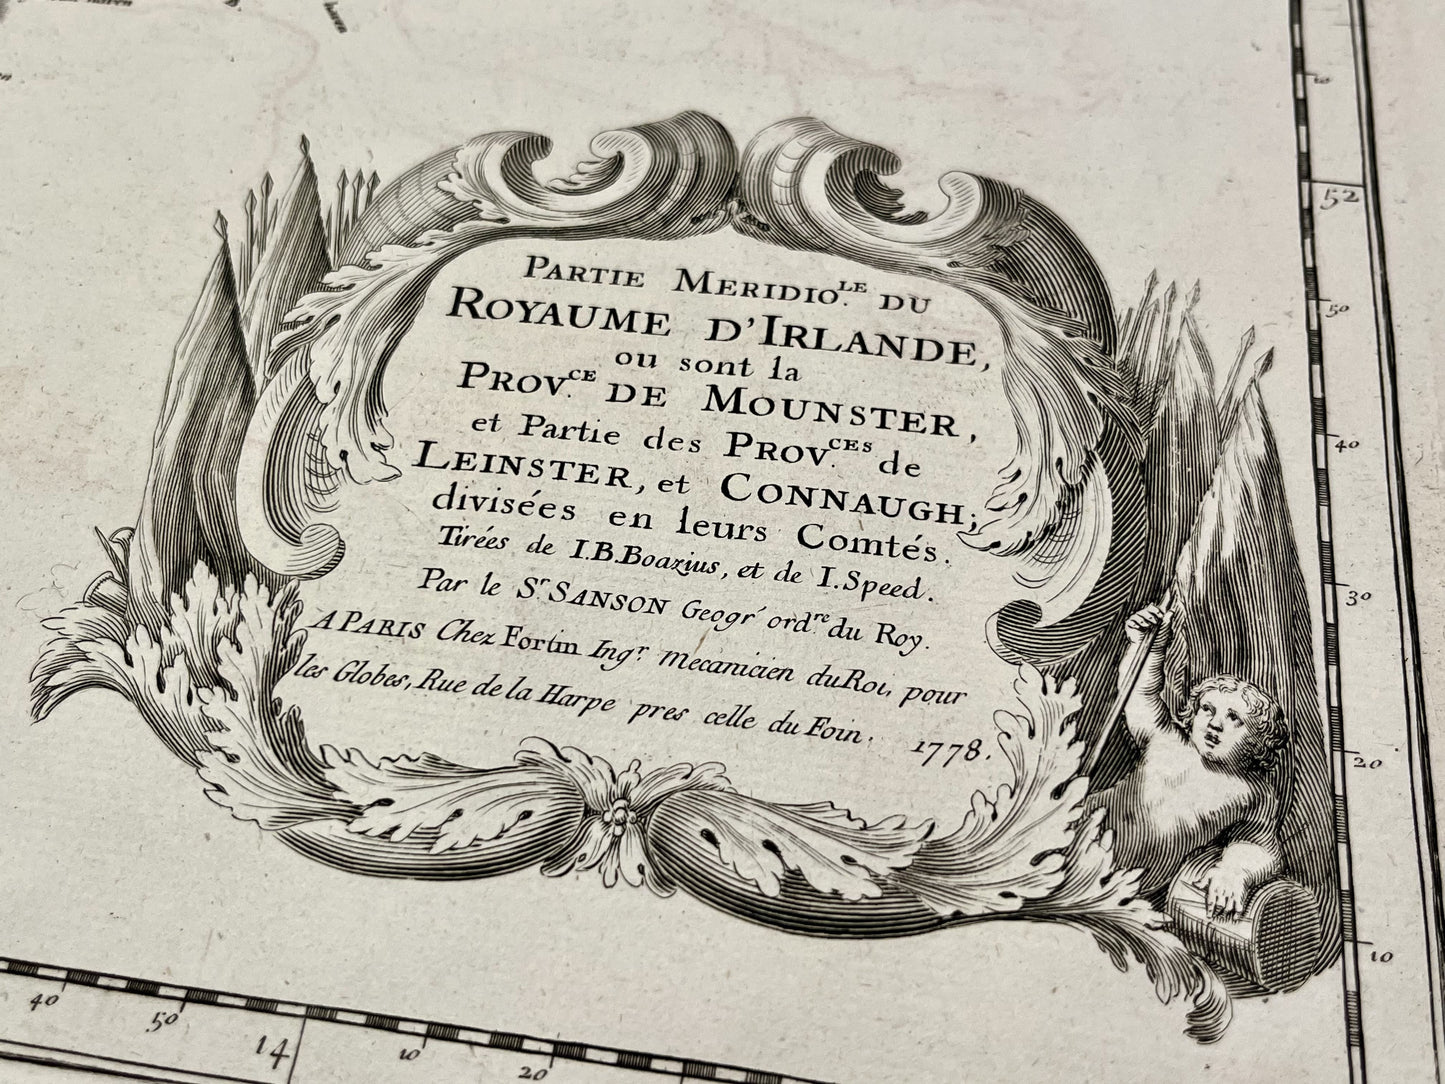 PARTIE MERIDIO.LE DU
ROYAUME D'IRLANDE,
ou sont la
PROV.CE DE MOUNSTER,
et Partie des PROV.CES de
LEINSTER, et CONNAUGH;
divisées en leurs Comtés.
Tirées de I.B.Boazius, et de I.Speed.
Par le Sr SANSON Geogr ordre du Roy.
A PARIS Chez Fortin Ingr mecanicien du Roi, pour
les Globes, Rue de la Harpe pres celle du Foin. 1778.
52
50
40
30
20
10
40
50
14
10
20